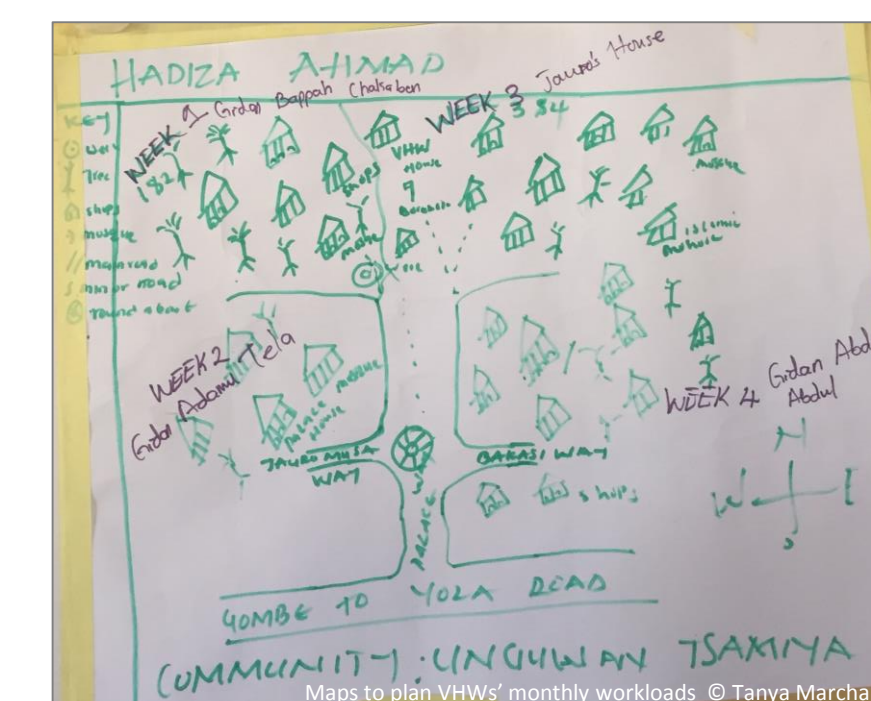 HADIZA AHMAD
KEY
Tree
shops
mosque
main road
minor road
round about
WEEK 1 Gidan Bappah
182
WEEK 3 Jauro's House
384
shops
VHW
House
WEEK 2
Gidan Adamu Tela
PALACE
HOUSE
JAURO MUSA
WAY
BAKASI WAY
PALACE WAY
shops
WEEK 4 Gidan Abd
Abdul
N
W
GOMBE TO YOLA ROAD
COMMUNITY: UNGUWAN TSAMIYA
Maps to plan VHWs' monthly workloads © Tanya Marcha